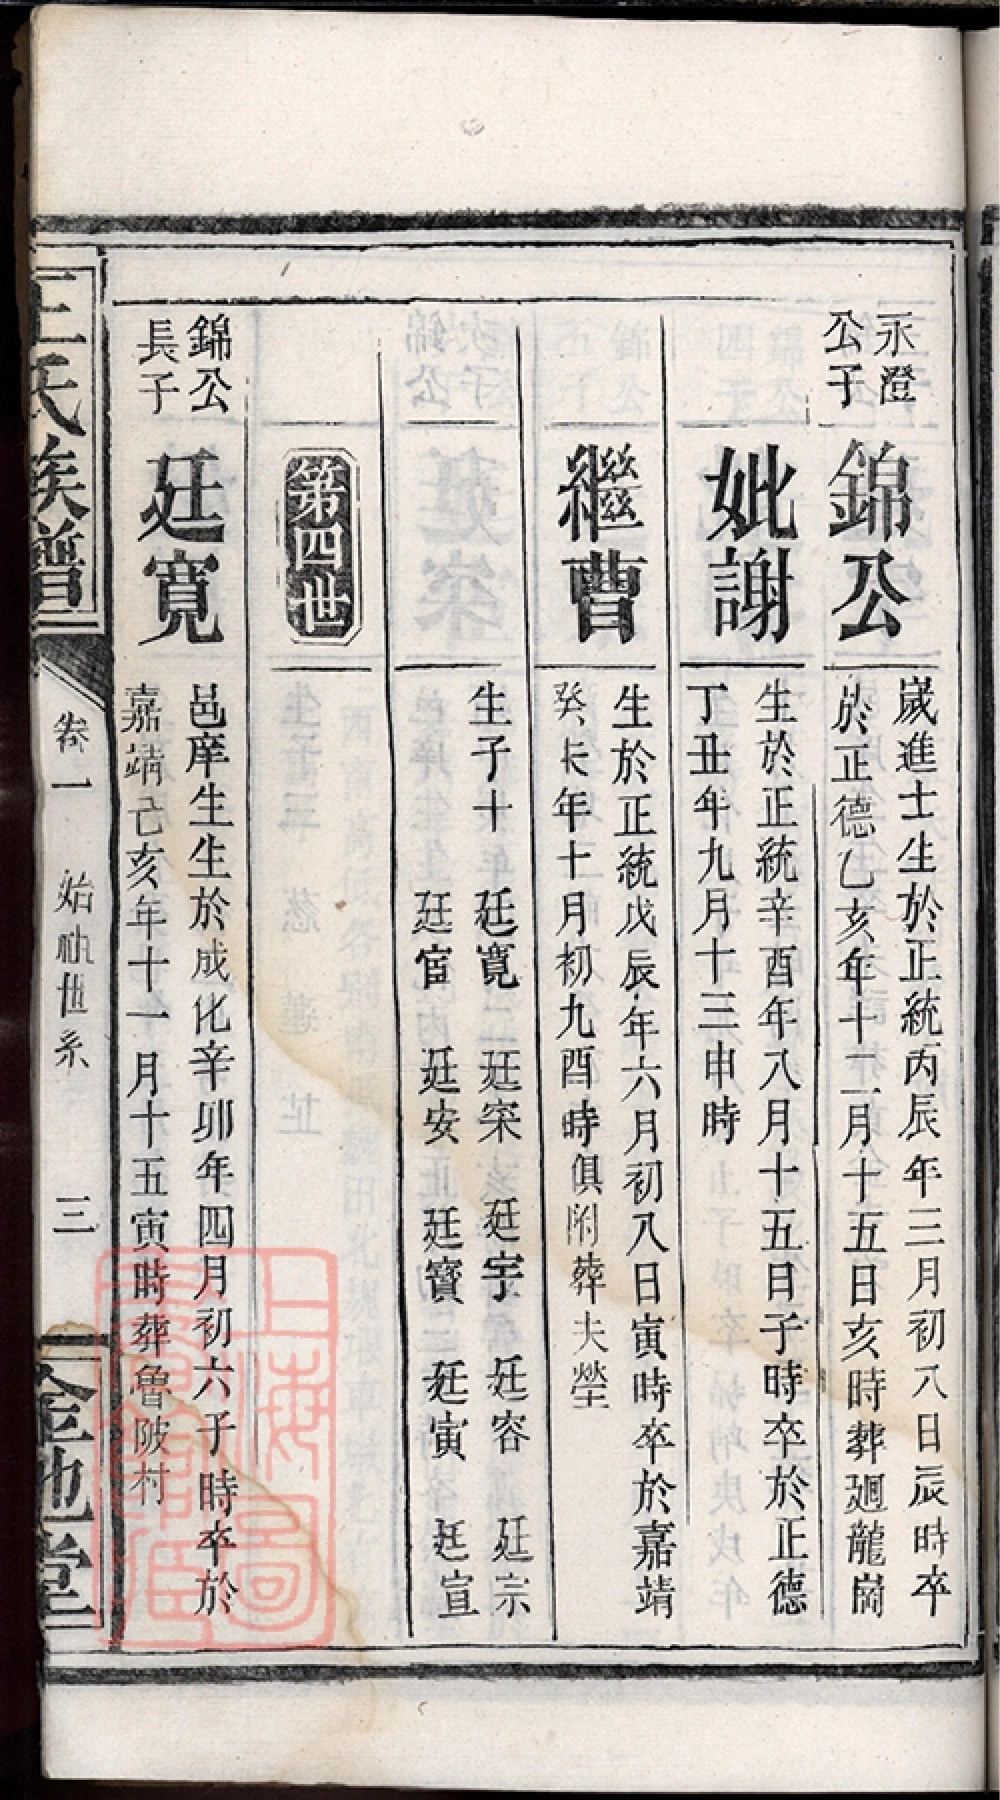 永澄
公子
錦公
歲進士生於正統丙辰年三月初八日辰時卒
於正德乙亥年十一月十五日亥時葬廻龍崗
妣謝
生於正統辛酉年八月十五日子時卒於正德
丁丑年九月十三申時
繼曹
生於正統戊辰年六月初八日寅時卒於嘉靖
癸长年十月初九酉時俱附葬夫塋
生子十 廷寬 廷寀 廷宇 廷容 廷宗
廷宦 廷安 廷寳 廷寅 廷宣
第四世
錦公
長子
廷寬
邑庠生生於成化辛卯年四月初六子時卒於
嘉靖己亥年十一月十五寅時葬魯陂村
王氏族譜
卷一 始祖世系 三
金池堂
上海圖
書館藏